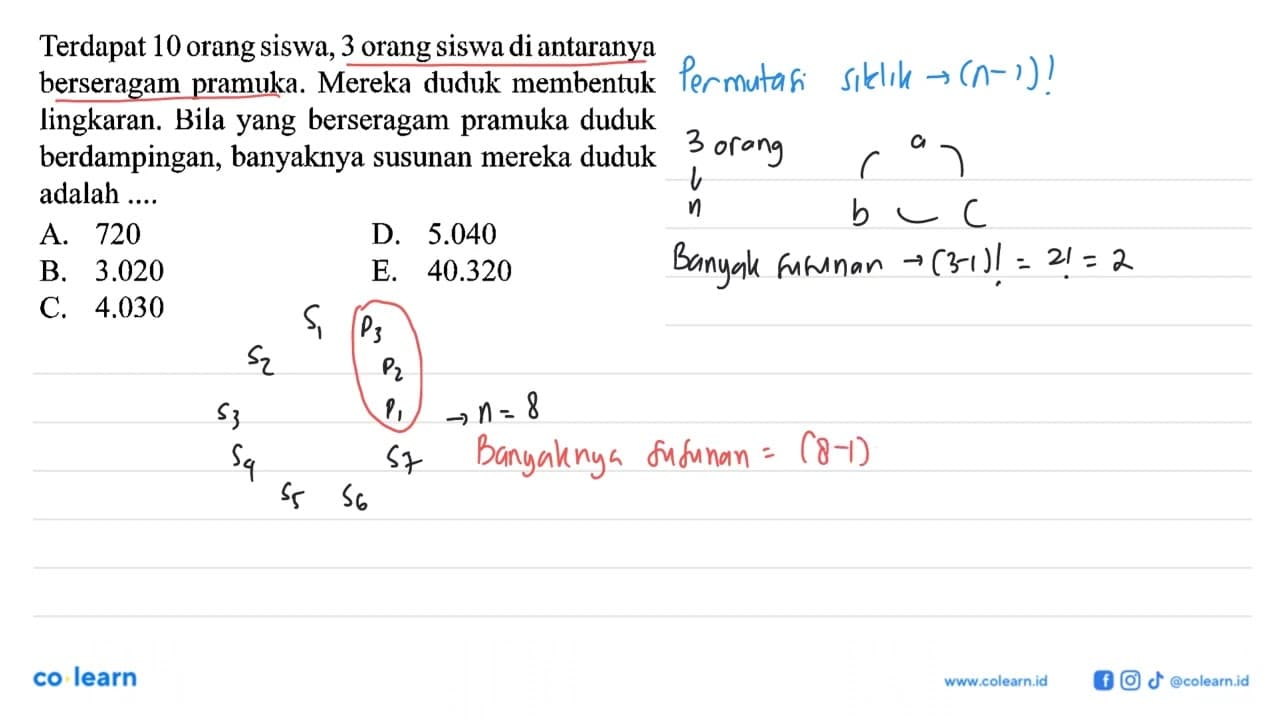 Terdapat 10 orang siswa, 3 orang siswa di antaranya
berseragam pramuka. Mereka duduk membentuk
lingkaran. Bila yang berseragam pramuka duduk
berdampingan, banyaknya susunan mereka duduk
adalah ....
A. 720
B. 3.020
C. 4.030
D. 5.040
E. 40.320
Permutasi siklik → (n-1)!
3 orang
↓
n
a
b c
Banyak susunan → (3-1)! = 2! = 2
S1 P3
S2 P2
S3 P1 → n = 8
S4 S7
S5 S6
Banyaknya susunan = (8-1)
co learn
www.colearn.id
@colearn.id